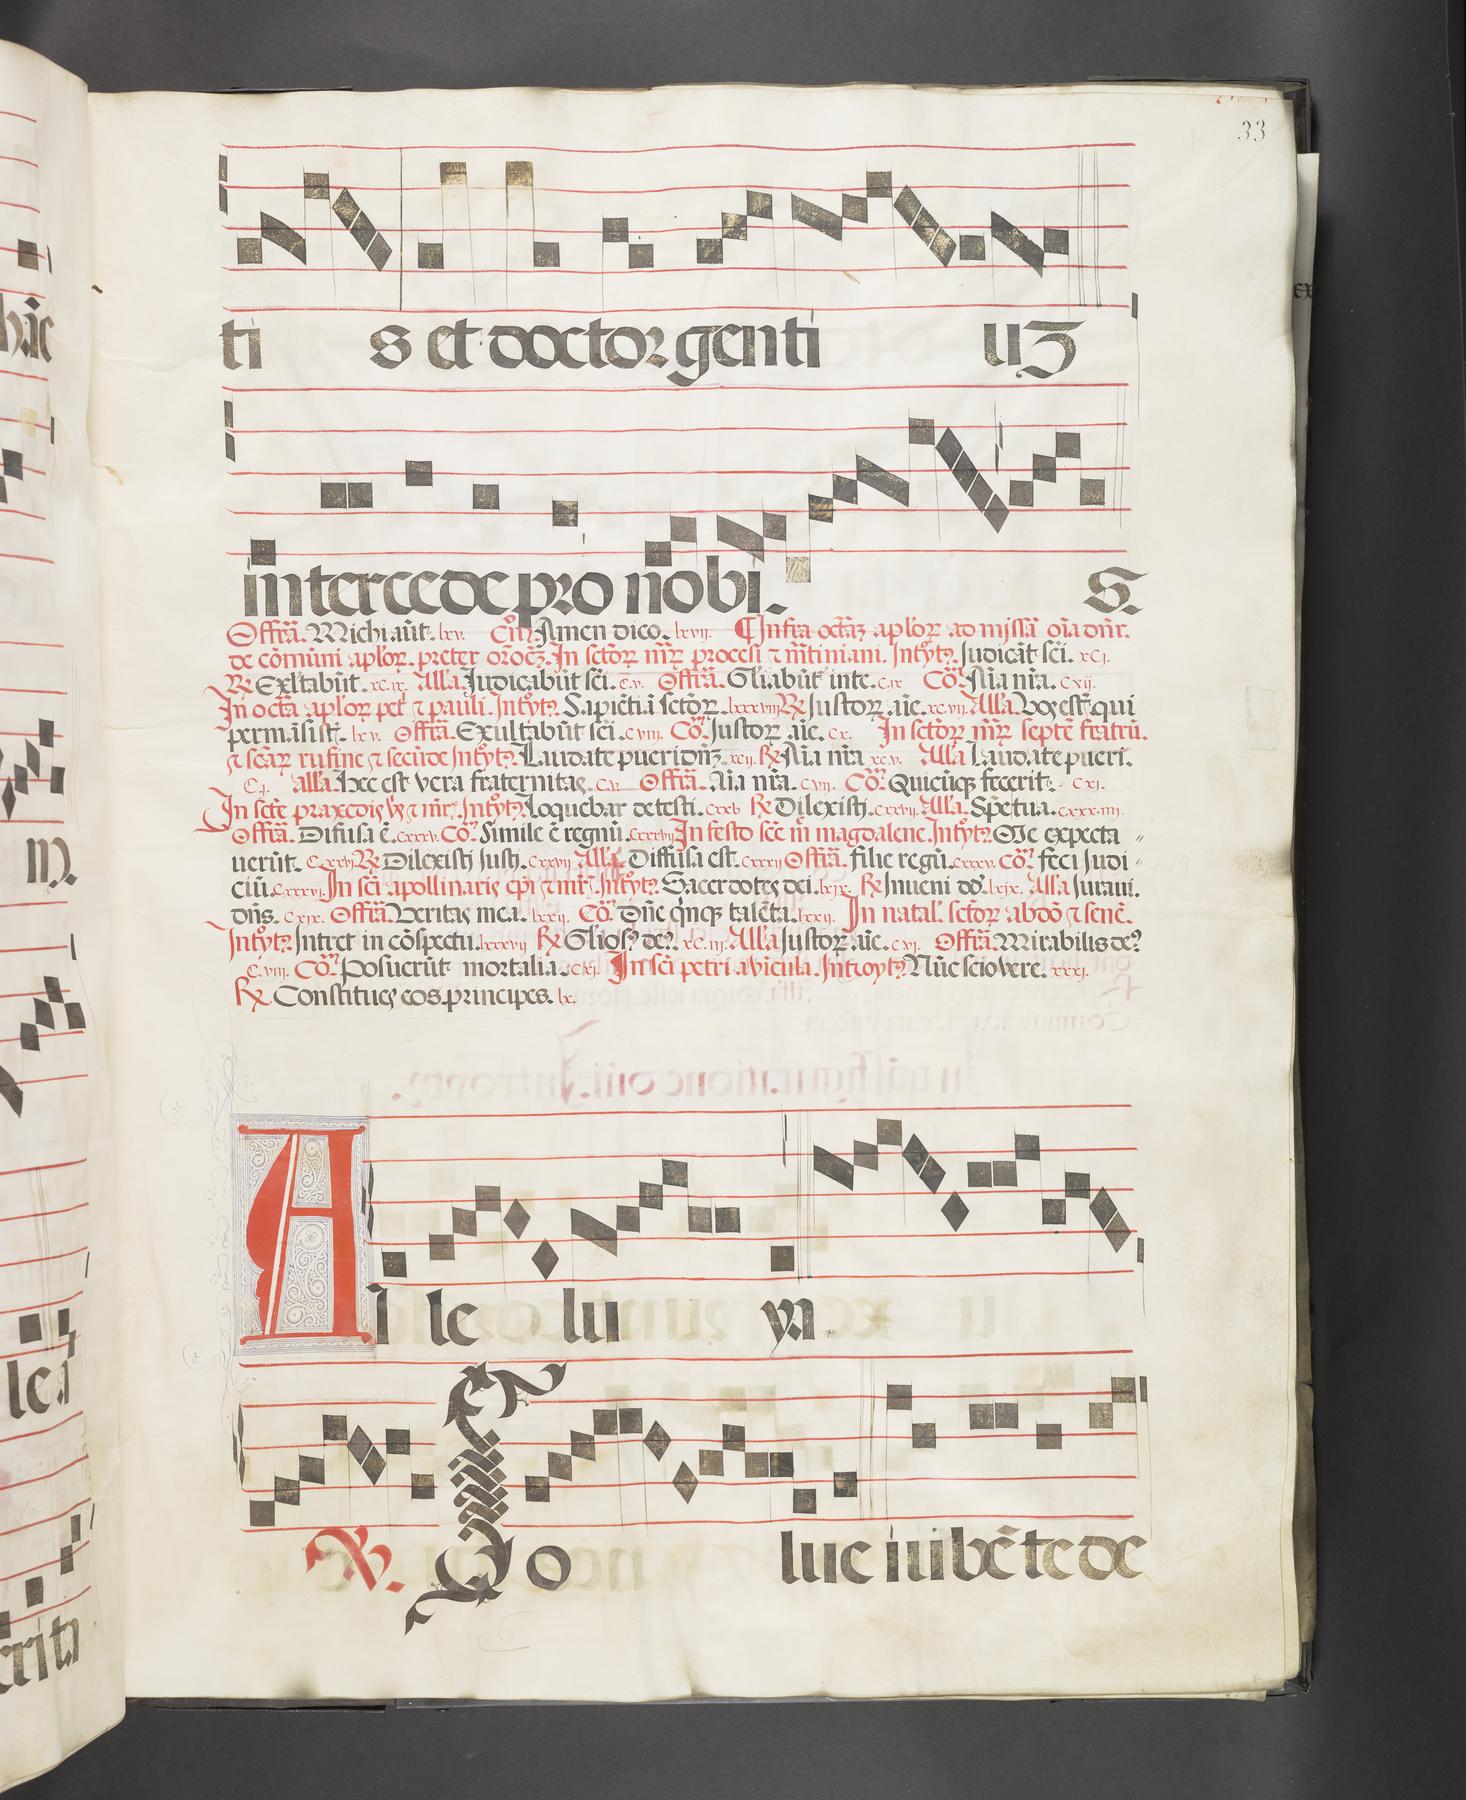 33
ti s et doctor genti uʒ
intercede pro nobi. S.
Offrã. Michi aũt. lxv. Cõ. Amen dico. lxvii. Infra octãʒ aploꝝ ad missã oĩa dñr.
de cõmuni aploꝝ. preter orõeʒ. In sctõꝝ mr̃ꝝ procesi ⁊ m̃tiniani. Introytꝰ. Judicãt sci. xcj.
℞ Exltabũt. xc.ix. Alla. Judicabũt sci. c.v. Offrã. Gliabũt in te. c.ix Cõ. Aĩa nr̃a. cxii.
In octã aploꝝ pet̃ ⁊ pauli. Introytꝰ. Sapiẽtiã sctõꝝ. lxxxviii ℞ Justoꝝ aĩe. xc.vii. Alla. Vos estꝭ qui
permãsistꝭ. lxv. Offrã. Exultabũt sci. c.viii. Cõ. Justoꝝ aĩe. cx. In sctõꝝ mr̃ꝝ septẽ fratrũ.
⁊ scãꝝ rufine ⁊ secũde Introytꝰ. Laudate pueri dñʒ. xcii. ℞ Aĩa nr̃a xc.v. Alla Laudate pueri.
c.j. alla. Hec est vera fraternitas. c.v. Offrã. Aĩa nr̃a. c.vii. Cõ. Quicũqꝫ fecerit. cxj.
In scte praxedis ⁊ mr̃. Introytꝰ. Loquebar de testi. cxxv ℞ Dilexisti. cxxvii. Alla. Spẽtua. cxxx.iiii.
Offrã. Difusa ẽ. cxxxv. Cõ. Simile ẽ regnũ. cxxxvij In festo scẽ m̃ magdalene. Introytꝰ. Me expecta
uerũt. cxxvi ℞ Dilexisti justi. cxxvii Alla. Diffusa est. cxxxii Offrã. filie regũ. cxxxv. Cõ. feci judi
ciũ. cxxxvi. In sci apollinaris ep̃i ⁊ mr̃. Introytꝰ. Sacerdotes dei. lxix. ℞ Inueni dd̃. lxix. Alla Jurauit.
dñs. cxix. Offrã. Veritas mea. lxxii. Cõ. Dñe qinqꝫ talẽta. lxxii. In natal. sctõꝝ abdõ ⁊ senẽ.
Introytꝰ. Intret in cõspectu. lxxxvii ℞ Gliosꝰ deꝰ. xc.iii. Alla Justoꝝ aĩe. c.vi. Offrã. Mirabilis deꝰ
c.viii. Cõ. Posuerũt mortalia. cxj. In sci petri a vĩcula. Introytꝰ. Nũc scio vere. xxxi.
℞ Constitues eos principes. lx.
Al le lu ya
℣. So lue iubẽte de